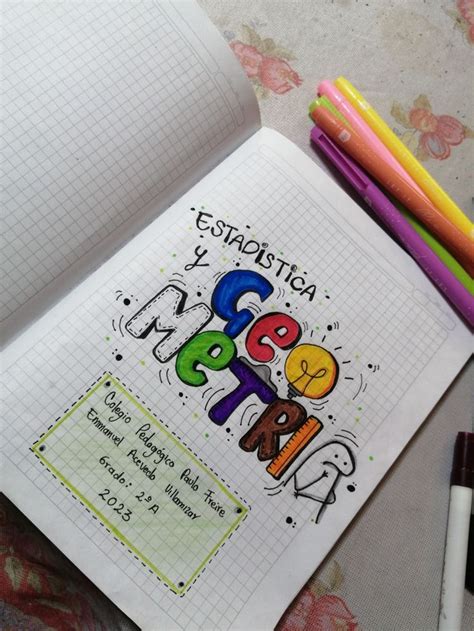 ESTADÍSTICA
y
GEO
METRIA
Colegio Pedagógico Paulo Freire
Emmanuel Acevedo Villamizar
Grado: 2º A
2023